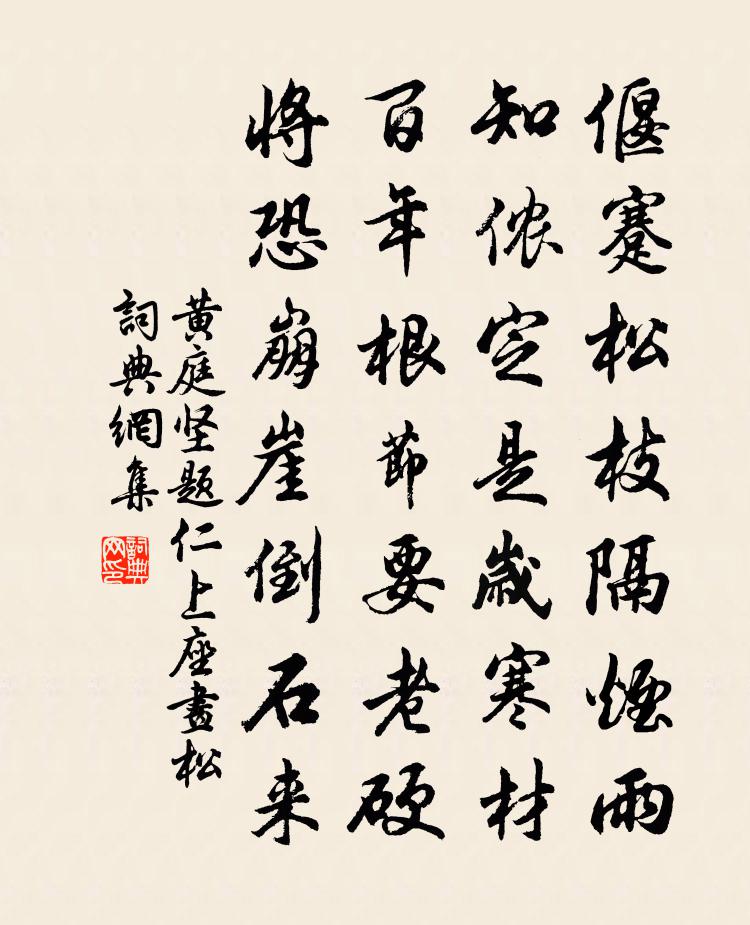 偃蹇松枝隔煙雨
知侬定是歲寒材
百年根節要老硬
将恐崩崖倒石来
黄庭坚题仁上座畫松
詞典網集
詞典网印